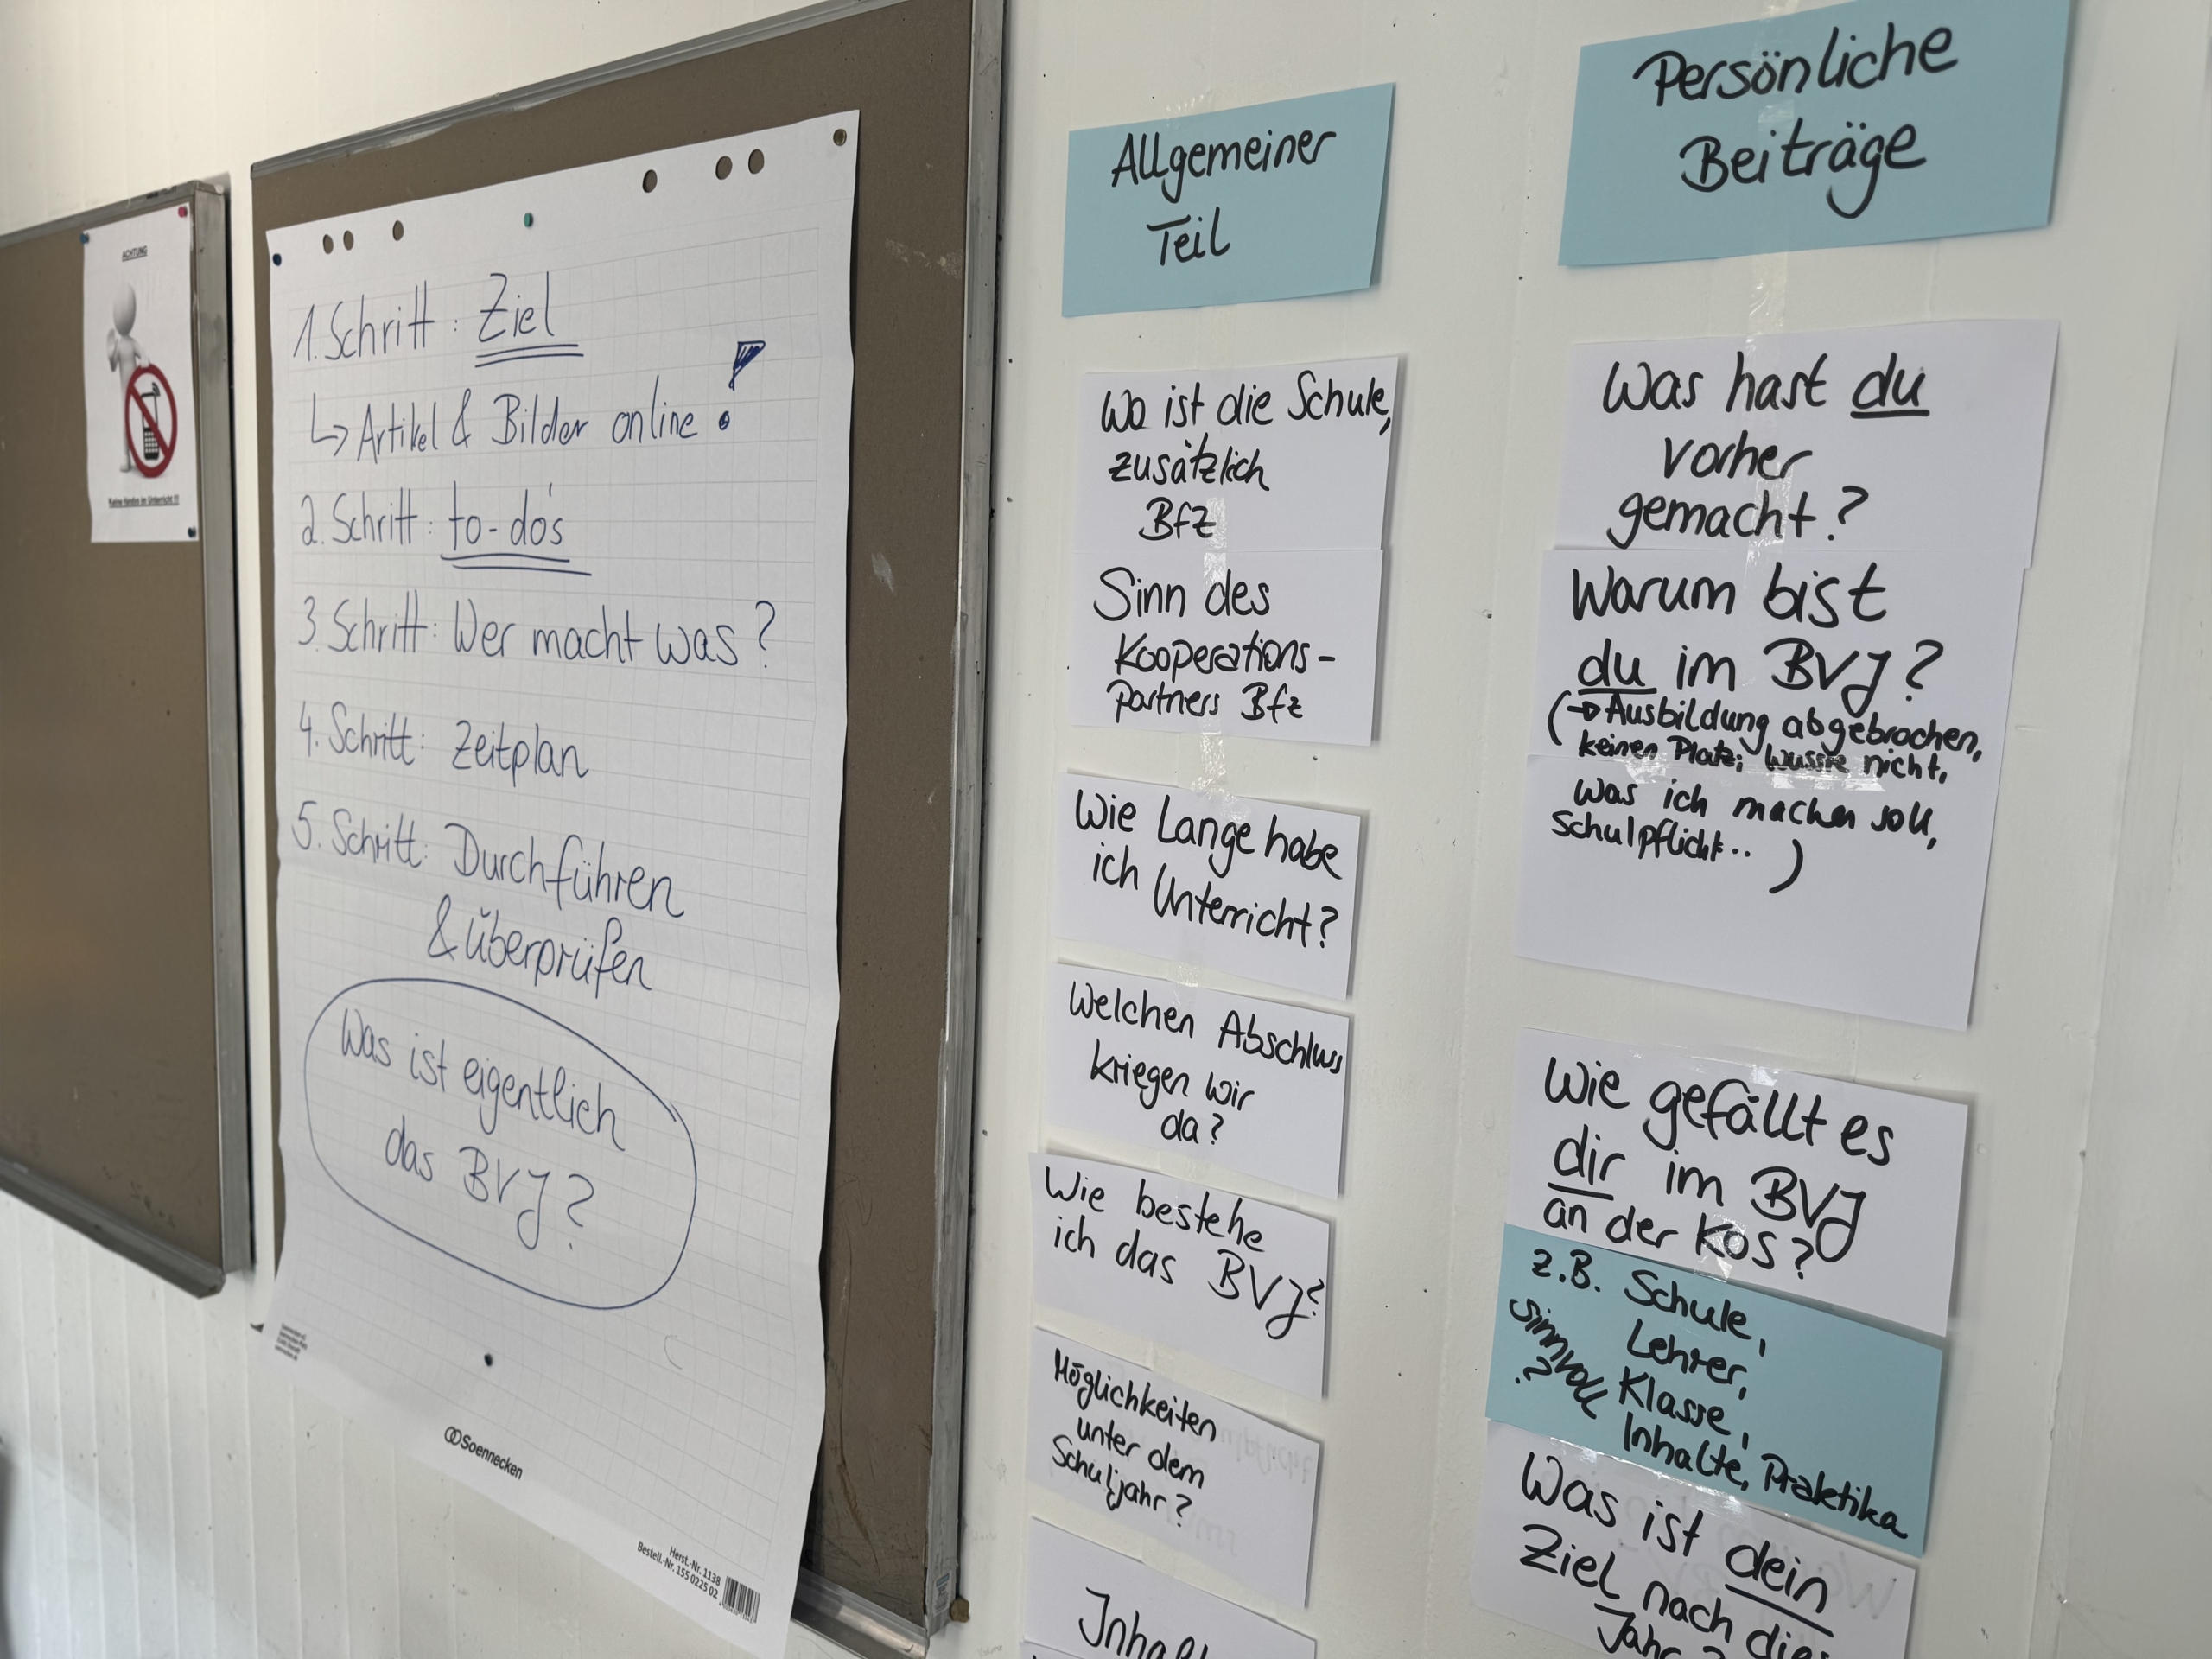 ACHTUNG
Keine Handys im Unterricht !!!
1. Schritt: Ziel
↳ Artikel & Bilder online !
2. Schritt: to-do's
3. Schritt: Wer macht was?
4. Schritt: Zeitplan
5. Schritt: Durchführen
& überprüfen
Was ist eigentlich
das BVJ?
Soennecken
Herst.-Nr. 1138
Bestell.-Nr. 155 0225 02
Allgemeiner
Teil
Wo ist die Schule,
zusätzlich
BfZ
Sinn des
Kooperations-
partners Bfz
Wie Lange habe
ich Unterricht?
Welchen Abschluss
kriegen wir
da?
Wie bestehe
ich das BVJ?
Möglichkeiten
unter dem
Schuljahr?
Persönliche
Beiträge
Was hast du
vorher
gemacht?
Warum bist
du im BVJ?
(→ Ausbildung abgebrochen,
keinen Platz; wusste nicht,
was ich machen soll,
Schulpflicht.. )
Wie gefällt es
dir im BVJ
an der KOS?
z.B. Schule,
Lehrer,
Klasse,
Inhalte, Praktika
sinnvoll
?
Was ist dein
Ziel nach
Jahr?